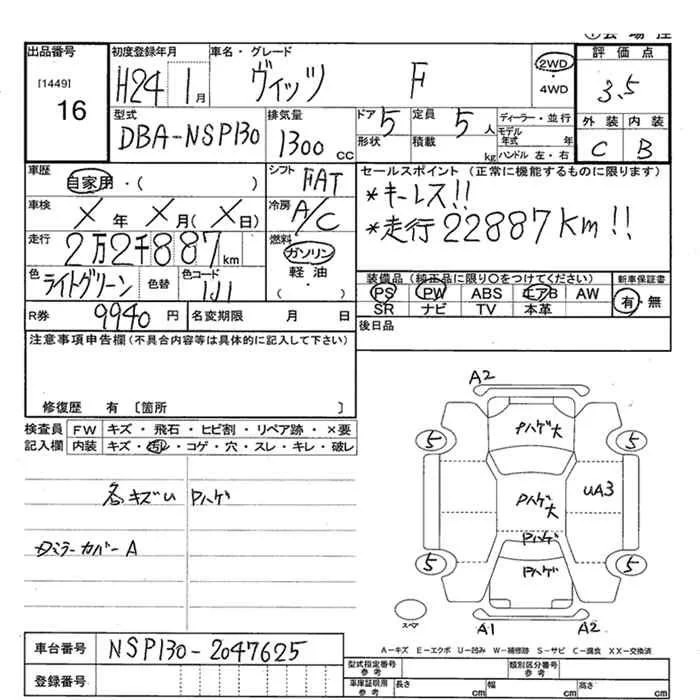 出品番号
[1449]
16
初度登録年月
H24 1月
車名・グレード
ヴィッツ F
2WD
・4WD
評価点
3.5
外装 内装
C B
型式
DBA-NSP130
排気量
1300 cc
ドア 5
形状
定員 5 人
積載 kg
ディーラー・並行
モデル年式 年
ハンドル 左・右
車歴
自家用・( )
シフト
FAT
セールスポイント (正常に機能するものに限ります)
*キーレス!!
*走行 22887km!!
車検
X年 X月(X日)
冷房
A/C
走行
2万2千887km
燃料
ガソリン
軽油・
( )
色
ライトグリーン
色替
色コード
装備品 (純正品に限り〇をつけてください)
新車保証書
PS PW ABS エアB AW
有・無
SR ナビ TV 本革
R券 9940円
名変期限 月 日
後日品
注意事項申告欄(不具合内容等は具体的に記入して下さい)
修復歴 有 〔箇所 〕
検査員 FW キズ・飛石・ヒビ割・リペア跡・×要
記入欄 内装 キズ・汚レ・コゲ・穴・スレ・キレ・破レ
各キズU Pハゲ
ミラーカバーA
A2
5 5
Pハゲ大
Pハゲ大
UA3
Pハゲ
Pハゲ
5 5
スペア
A1 A2
A-キズ E-エクボ U-凹み W-補修跡 S-サビ C-腐食 XX-交換済
車台番号 NSP130-2047625
登録番号
型式指定番号
参考
類別区分番号
参考
車庫証明用
参考
長さ cm
幅 cm
高さ cm